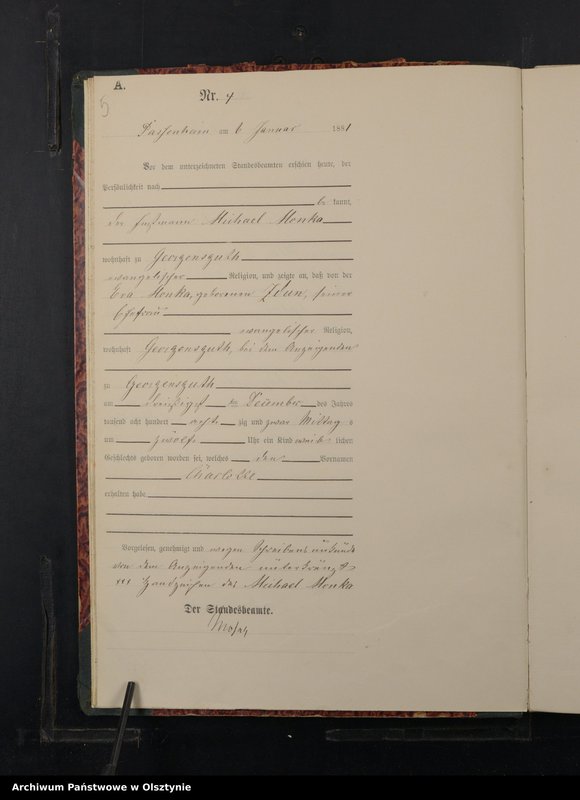 A.
5
Nr. 4
Passenheim am 6 Januar 1881
Vor dem unterzeichneten Standesbeamten erschien heute, der
Persönlichkeit nach
be kannt,
der Michael Monka
wohnhaft zu Georgensguth
evangelischer Religion, und zeigte an, daß von der
Eva Monka, geborenen Zdun, seiner
Ehefrau
evangelischer Religion,
wohnhaft Georgensguth, bei dem Anzeigenden
zu Georgensguth
am dreißigst en December des Jahres
tausend acht hundert acht zig und zwar Mittag s
um zwölf Uhr ein Kind weib lichen
Geschlechts geboren worden sei, welches den Vornamen
Charlotte
erhalten habe
Vorgelesen, genehmigt und wegen Schreibensunkunde
von dem Anzeigenden unterkreuzt
xxx Handzeichen des Michael Monka
Der Standesbeamte.
Archiwum Państwowe w Olsztynie